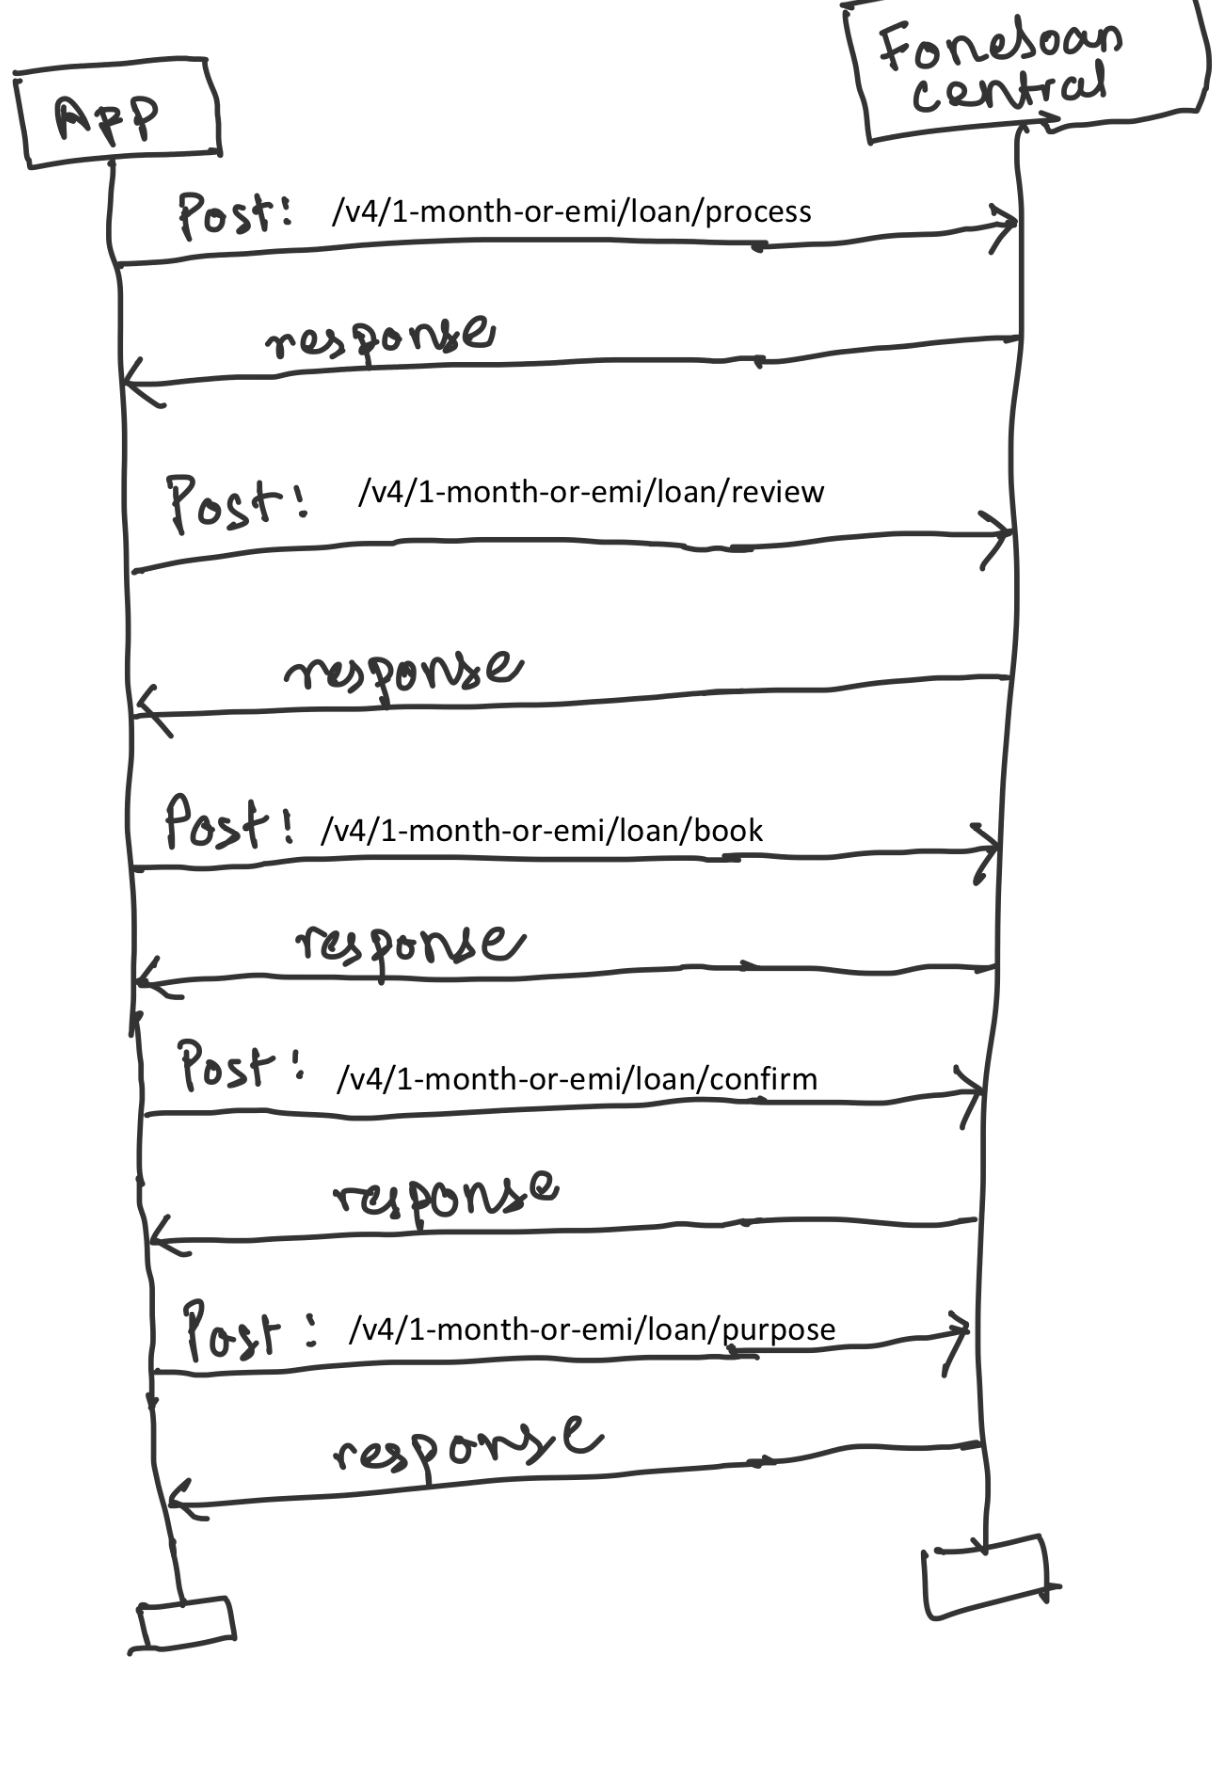 App
Foneloan
central
Post: /v4/1-month-or-emi/loan/process
response
Post: /v4/1-month-or-emi/loan/review
response
Post: /v4/1-month-or-emi/loan/book
response
Post: /v4/1-month-or-emi/loan/confirm
response
Post: /v4/1-month-or-emi/loan/purpose
response